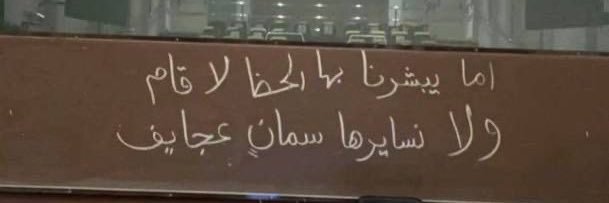 اما يبشرنا بها الحظ لا قام
ولا نسايرها سمانٍ عجايف